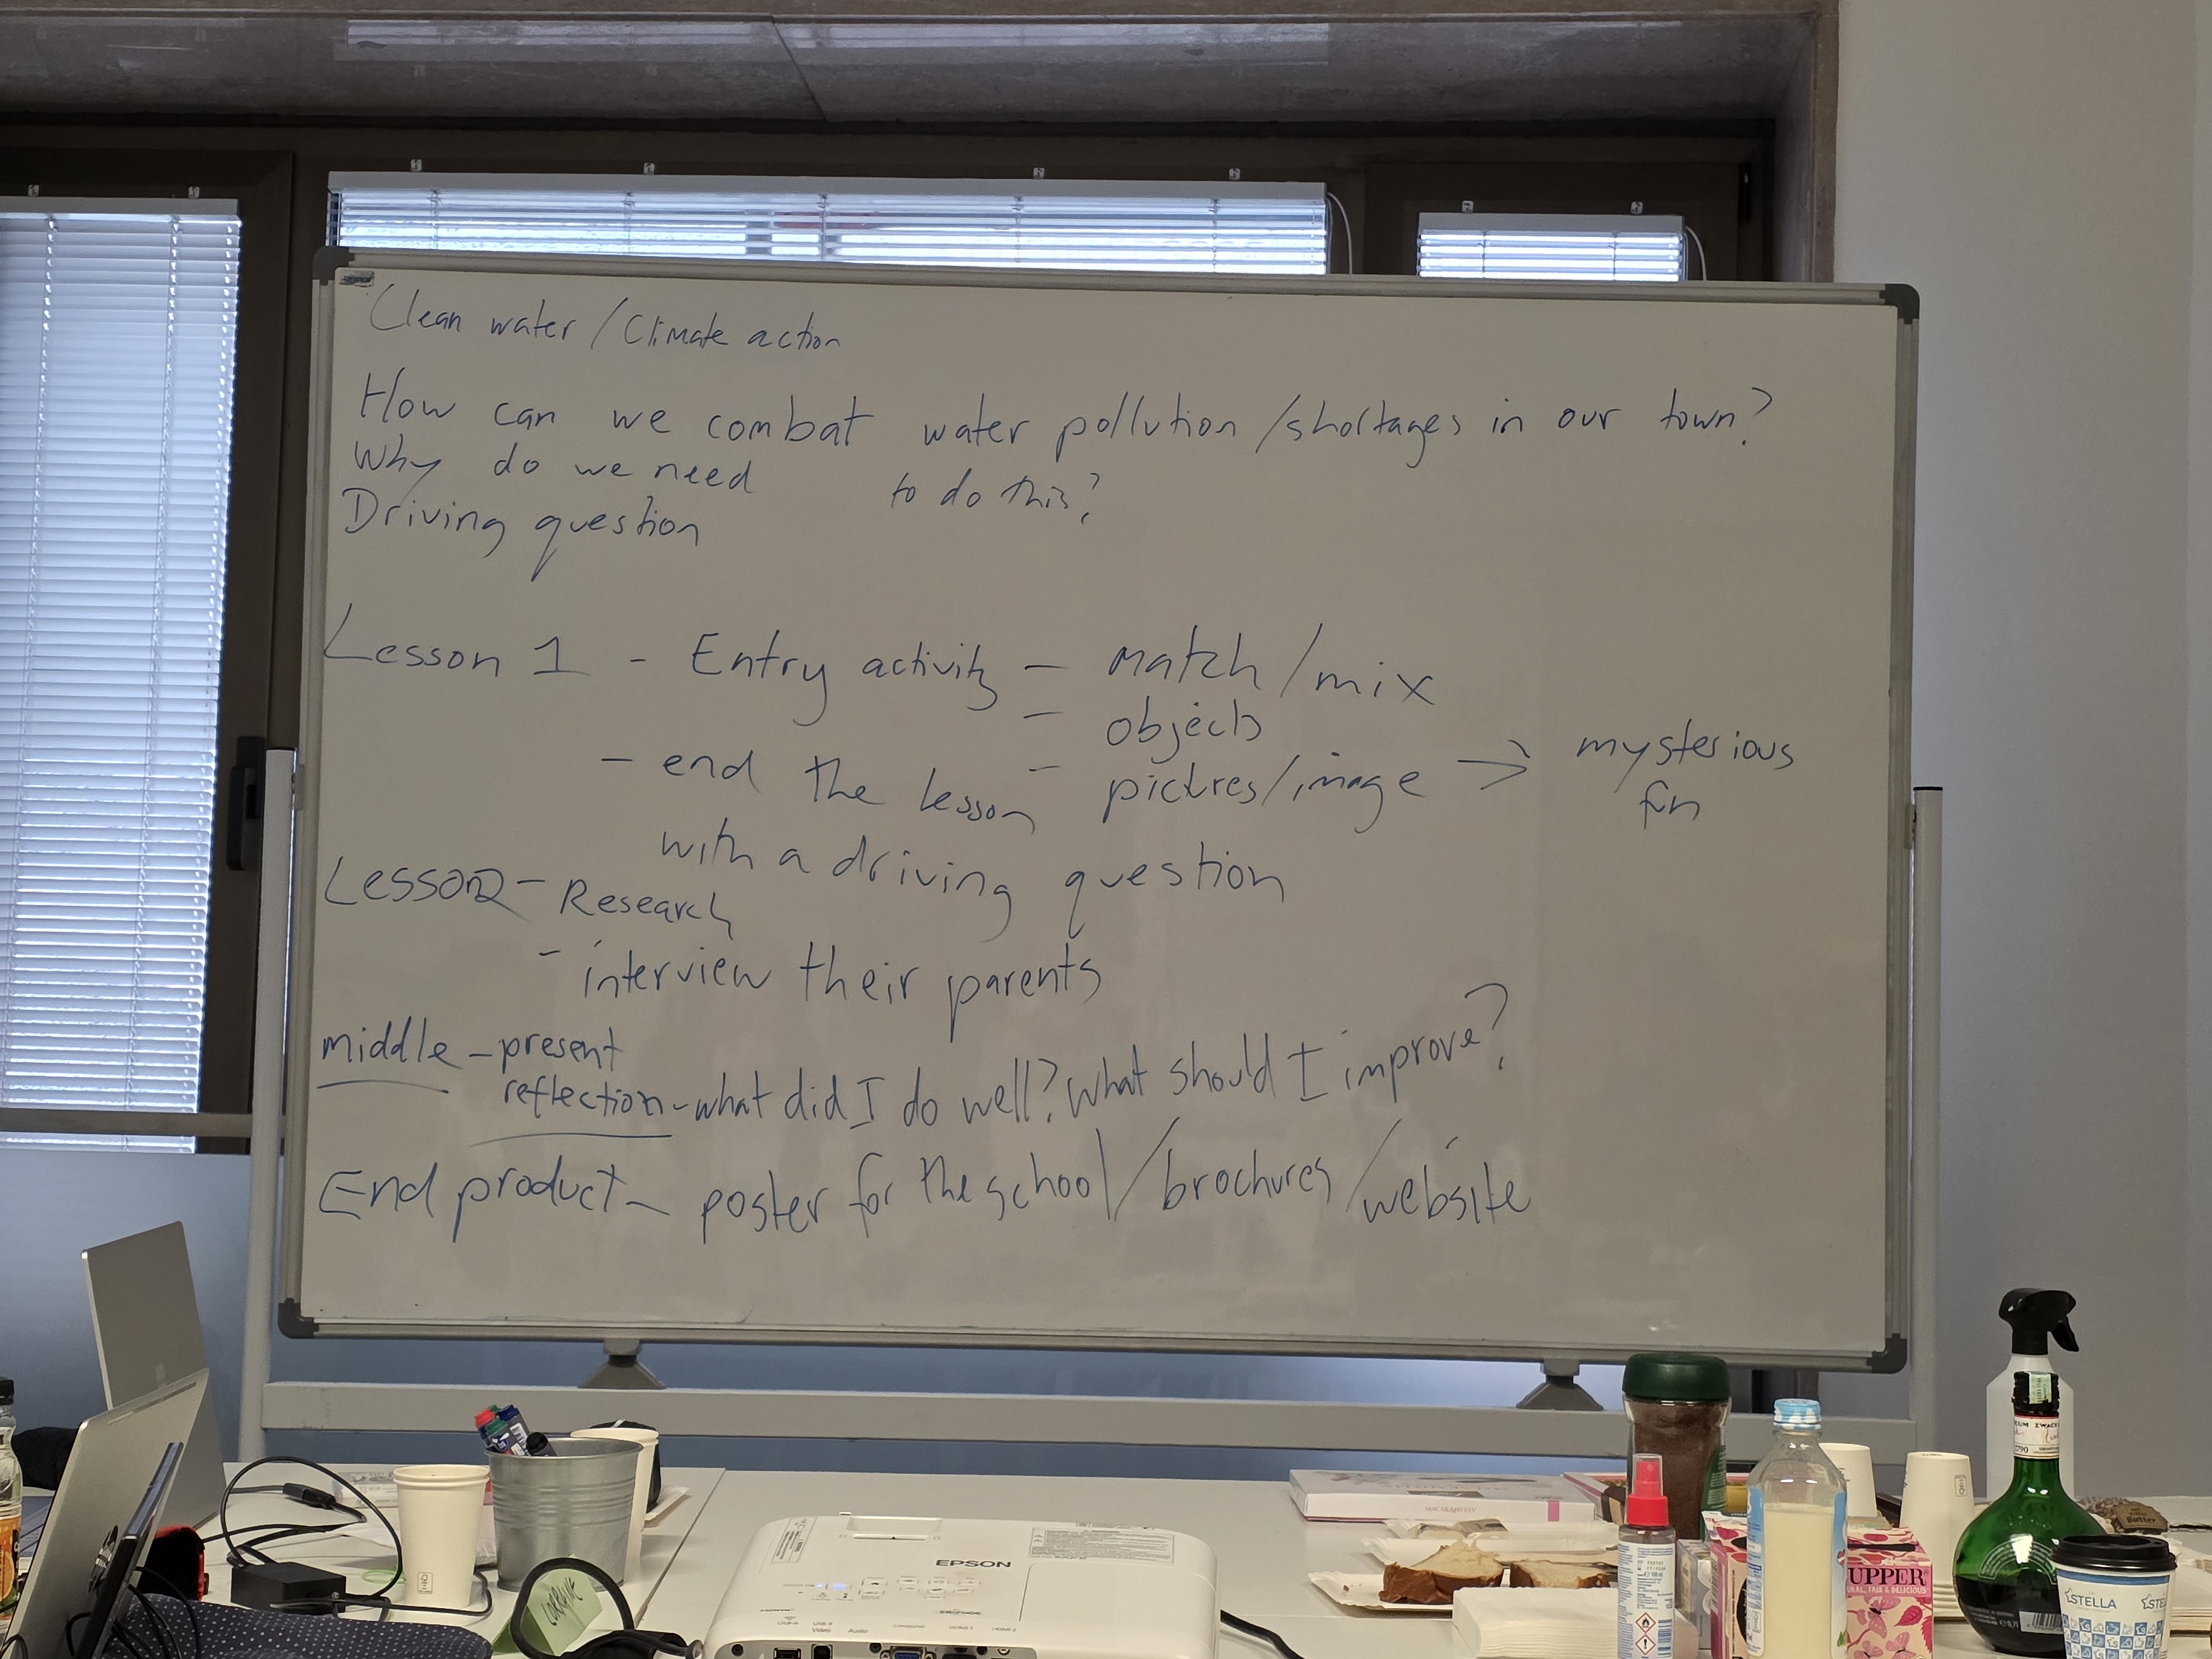 Clean water / Climate action
How can we combat water pollution / shortages in our town?
Why do we need to do this?
Driving question
Lesson 1 - Entry activity - match / mix
- objects
- pictures/image → mysterious
fun
- end the lesson
with a driving question
Lesson 2 - Research
- interview their parents
middle - present
reflection - what did I do well? What should I improve?
End product - poster for the school / brochures / website
EPSON
USB-A
USB-B
Video
Audio
Computer
HDMI 1
HDMI 2
CORRINE
UPPER
Butter
ZWACK
1790
STELLA
STE